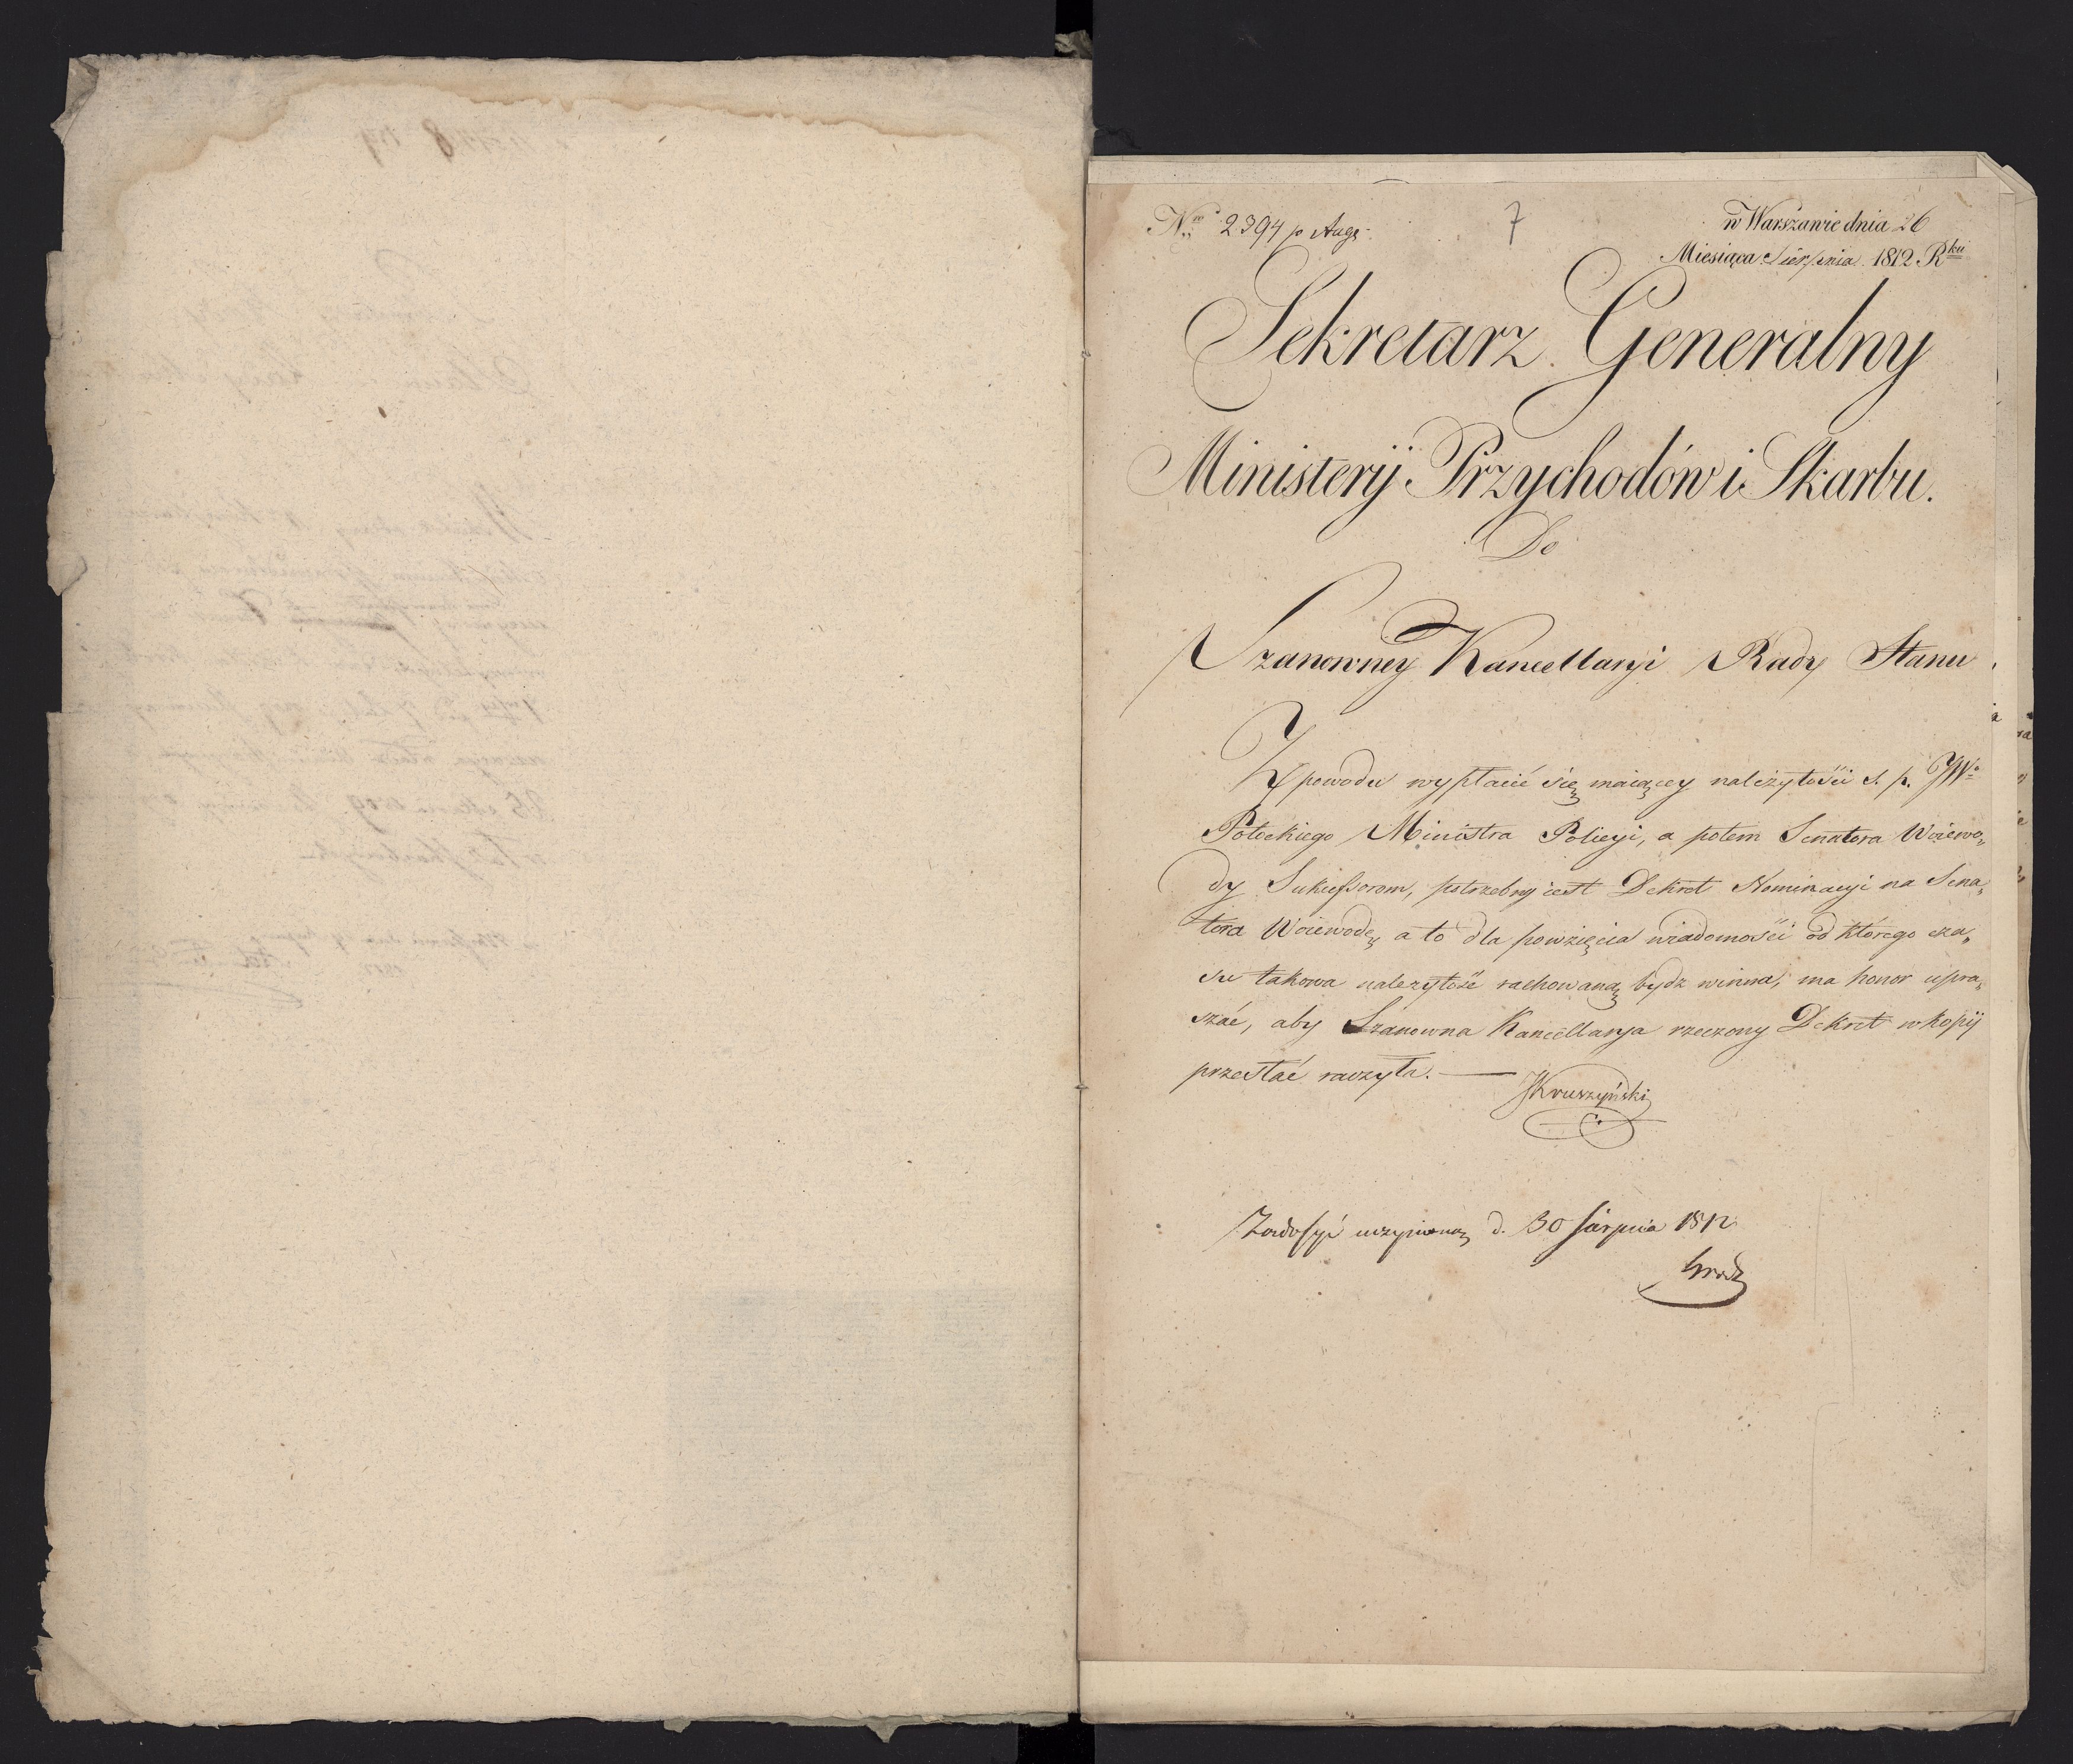 Nro 2394 p Aug:
7
w Warszawie dnia 26
Miesiąca Sierpnia 1812 Rku
Sekretarz Generalny
Ministerij Przychodów i Skarbu.
Do
Szanowney Kancellaryi Rady Stanu
Z powodu wypłacić się maiącey należytości s. p. JWo
Potockiego Ministra Policyi, a potem Senatora Woiewo„
dy Sukcessorom, potrzebny iest Dekret Nominacyi na Sena„
tora Woiewodę a to dla powzięcia wiadomości od którego cza„
su takowa należytość rachowaną bydz winna, ma honor upra„
szać, aby Szanowna Kancellarya rzeczony Dekret w kopij
przesłać raczyła. —
JKruszyński
Zadosyć uczyniono d. 30 Sierpnia 1812